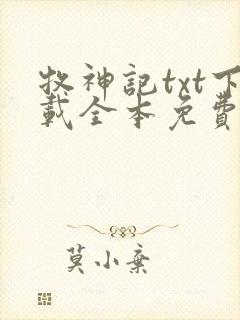 牧神記txt下
載全本免費
莫小棄